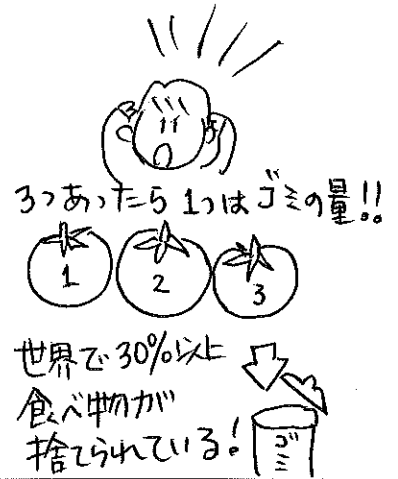 3つあったら1つはゴミの量!!
1 2 3
世界で30%以上
食べ物が
捨てられている!
ゴミ